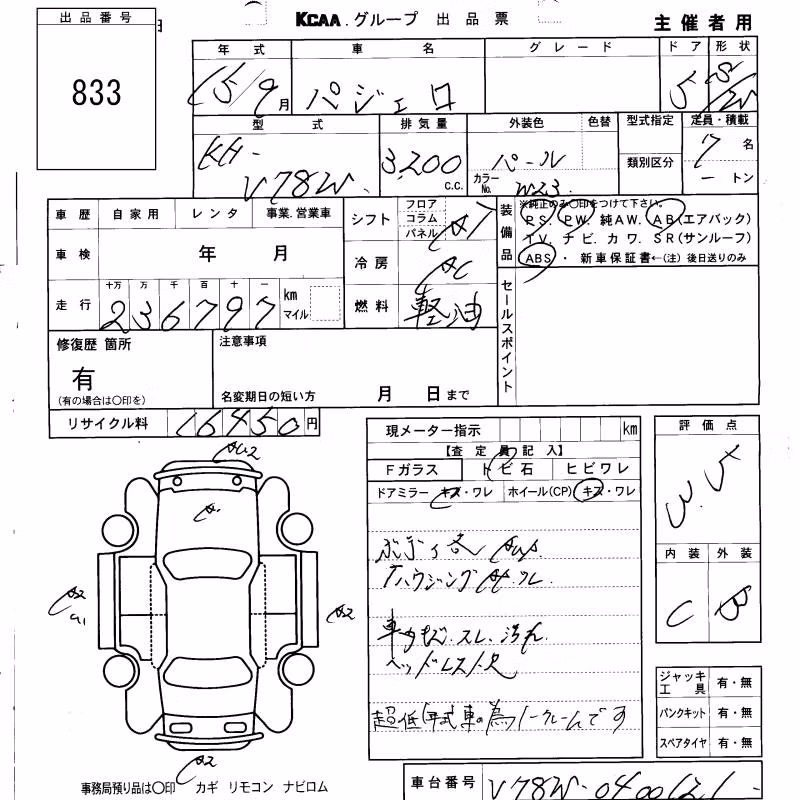 出品番号
833
KCAA.グループ 出品票
主催者用
年式 車名 グレード ドア 形状
15/9月 パジェロ 5 S/W
型式 排気量 外装色 色替 型式指定 定員・積載
KH-V78W 3,200 C.C. パール カラーNo. W23 類別区分 7名 ートン
車歴 自家用 レンタ 事業.営業車
シフト フロア コラム パネル AT
装備品 ※純正のみ〇印をつけて下さい。
P.S. P.W. 純AW. AB(エアバック)
T.V. ナビ. カワ. SR(サンルーフ)
ABS ・ 新車保証書←(注)後日送りのみ
車検 年 月
冷房 AC
走行 十万 万 千 百 十 一
236797 km マイル
燃料 軽油
セールスポイント
修復歴 箇所
有
(有の場合は〇印を)
注意事項
名変期日の短い方 月 日まで
リサイクル料 16450円
現メーター指示 km
【査定員記入】
Fガラス トビ石 ヒビワレ
ドアミラー キズ・ワレ ホイール(CP) キズ・ワレ
ハウジング
ヘッドレスト欠
超低年式車の為ノークレームです
評価点
内装 外装
C B
A2
A1
A2
A2
ジャッキ工具 有・無
パンクキット 有・無
スペアタイヤ 有・無
事務局預り品は〇印 カギ リモコン ナビロム
車台番号 V78W-0400121